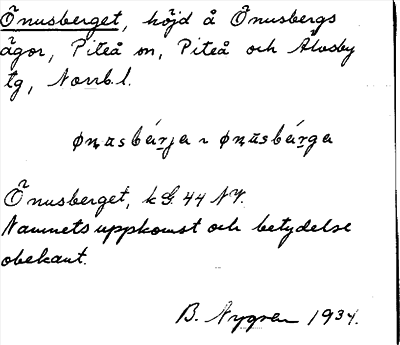 Önusberget, höjd å Önusbergs
ägor, Piteå sn, Piteå och Älvsby
tg, Norrb. l.
ønusbérja ~ ønusbérga
Önusberget, k G. 44 NV.
Namnets uppkomst och betydelse
obekant.
B. Nygren 1934.